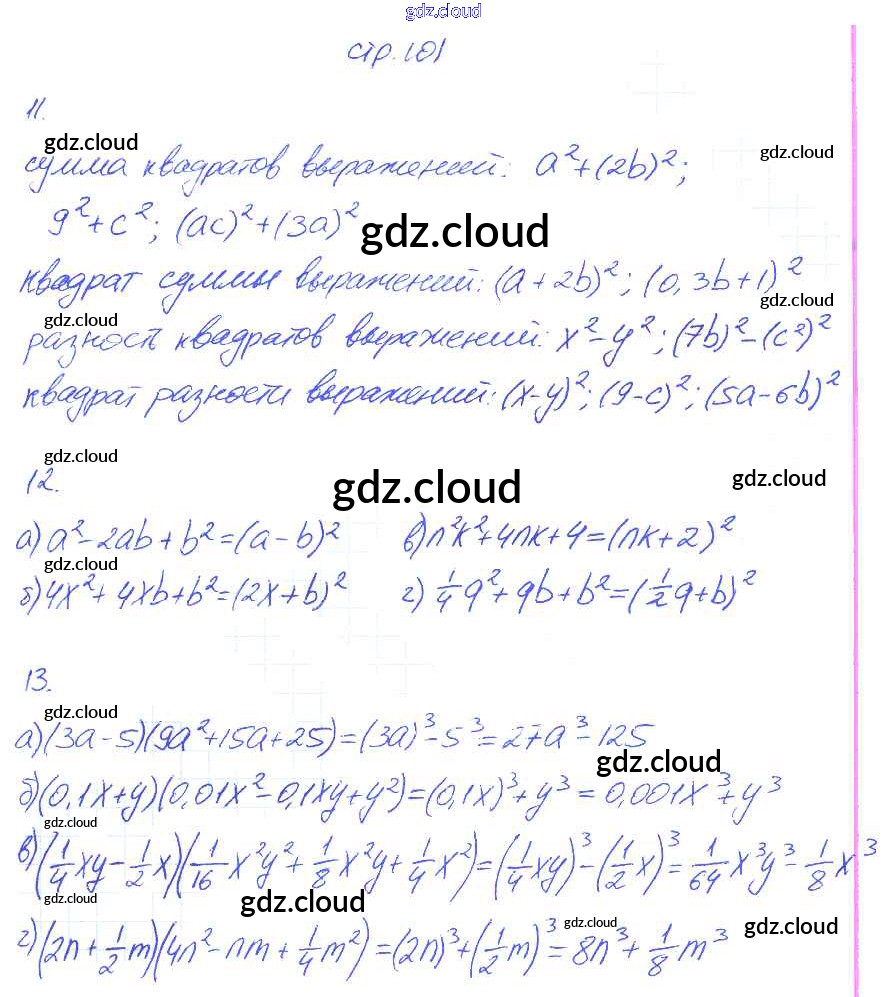 gdz.cloud
стр. 101
11.
gdz.cloud
сумма квадратов выражений: a²+(2b)²;
gdz.cloud
9²+c²; (ac)²+(3a)²
gdz.cloud
квадрат суммы выражений: (a+2b)²; (0,3b+1)²
gdz.cloud
gdz.cloud
разность квадратов выражений: x²-y²; (7b)²-(c²)²
квадрат разности выражений: (x-y)²; (9-c)²; (5a-6b)²
gdz.cloud
12.
gdz.cloud
gdz.cloud
а) a²-2ab+b²=(a-b)² в) n²k²+4nk+4=(nk+2)²
gdz.cloud
б) 4x²+4xb+b²=(2x+b)² г) 1/4 q²+qb+b²=(1/2 q+b)²
13.
gdz.cloud
а) (3a-5)(9a²+15a+25)=(3a)³-5³=27a³-125
gdz.cloud
б) (0,1x+y)(0,01x²-0,1xy+y²)=(0,1x)³+y³=0,001x³+y³
gdz.cloud
в) (1/4 xy-1/2 x)(1/16 x²y²+1/8 x²y+1/4 x²)=(1/4 xy)³-(1/2 x)³=1/64 x³y³-1/8 x³
gdz.cloud
gdz.cloud
gdz.cloud
gdz.cloud
г) (2n+1/2 m)(4n²-nm+1/4 m²)=(2n)³+(1/2 m)³=8n³+1/8 m³